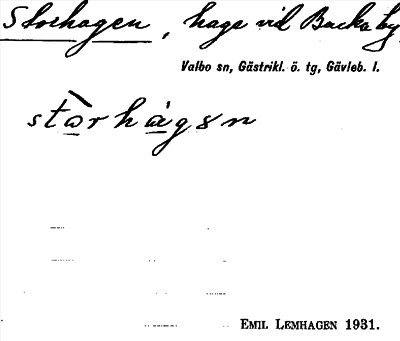 Storhagen, hage vid Backa by,
Valbo sn, Gästrikl. ö. tg, Gävleb. l.
stòrhágən
EMIL LEMHAGEN 1931.